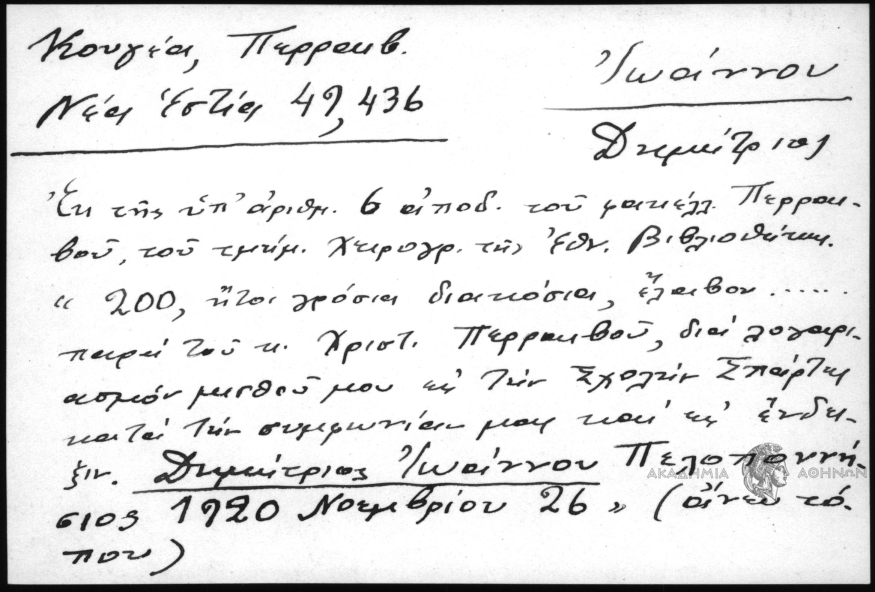 Κουγέα, Περραιβ.
Νέα Ἑστία 49, 436
Ἰωάννου
Δημήτριος
Ἐκ τῆς ὑπ' ἀριθμ. 6 ἀποδ. τοῦ φακέλλ. Περραι-
βοῦ, τοῦ τμήμ. Χειρογρ. τῆς Ἐθν. Βιβλιοθήκης.
" 200, ἤτοι γρόσια διακόσια, ἔλαβον ......
παρά τοῦ κ. Χριστ. Περραιβοῦ, διά λογαρι-
ασμόν μισθοῦ μου εἰς τήν Σχολήν Σπάρτης
κατά τήν συμφωνίαν μας καί εἰς ἔνδει-
ξιν. Δημήτριος Ἰωάννου Πελοποννή-
σιος 1920 Νοεμβρίου 26 " (ἄνευ τό-
που)
ΑΚΑΔΗΜΙΑ ΑΘΗΝΩΝ